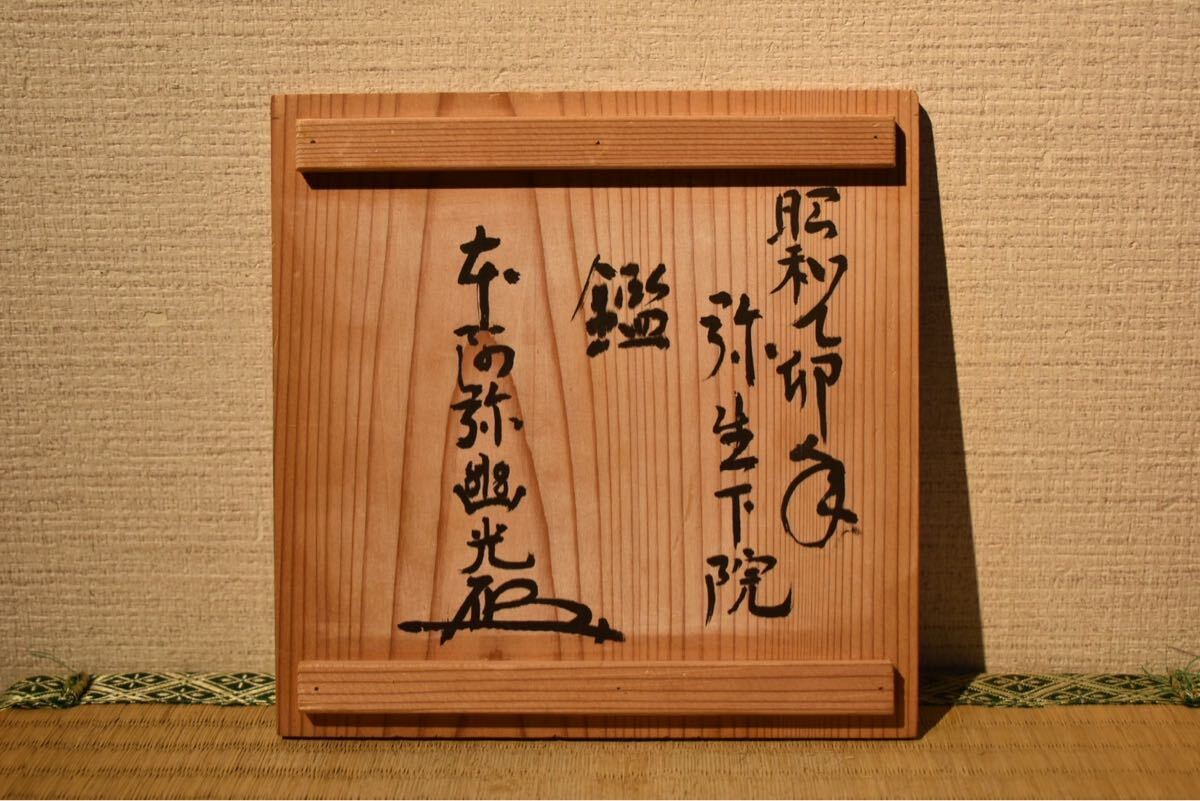 昭和乙卯年
弥生下院
鑑
本阿弥幽光